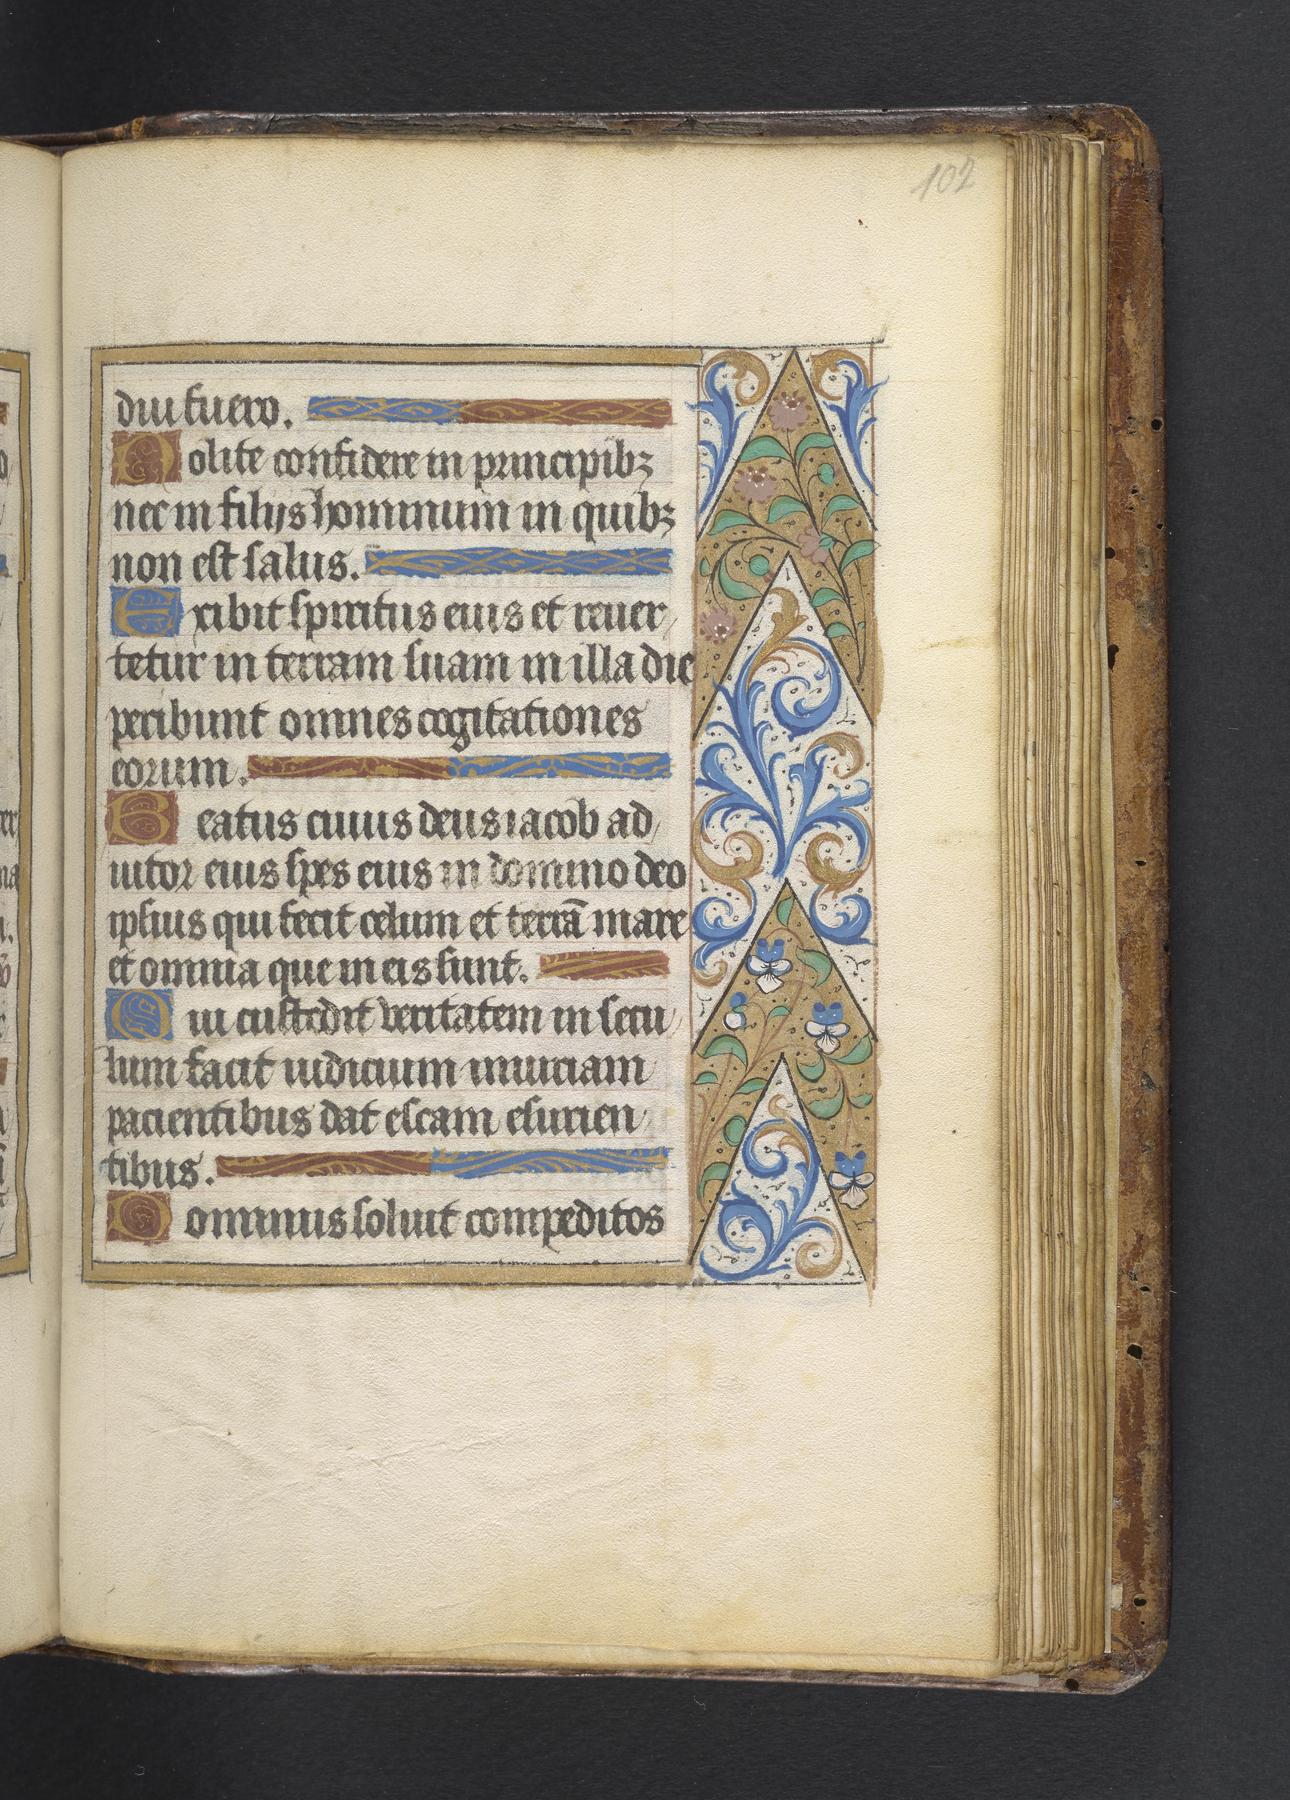 102
diu fuero.
Nolite confidere in principibꝫ
nec in filijs hominum in quibꝫ
non est salus.
Exibit spiritus eius et reuer
tetur in terram suam in illa die
peribunt omnes cogitationes
eorum.
Beatus cuius deus iacob ad
iutor eius spes eius in domino deo
ipsius qui fecit celum et terrã mare
et omnia que in eis sunt.
Qui custodit veritatem in secu
lum facit iudicium iniuriam
pacientibus dat escam esurien
tibus.
Dominus soluit compeditos